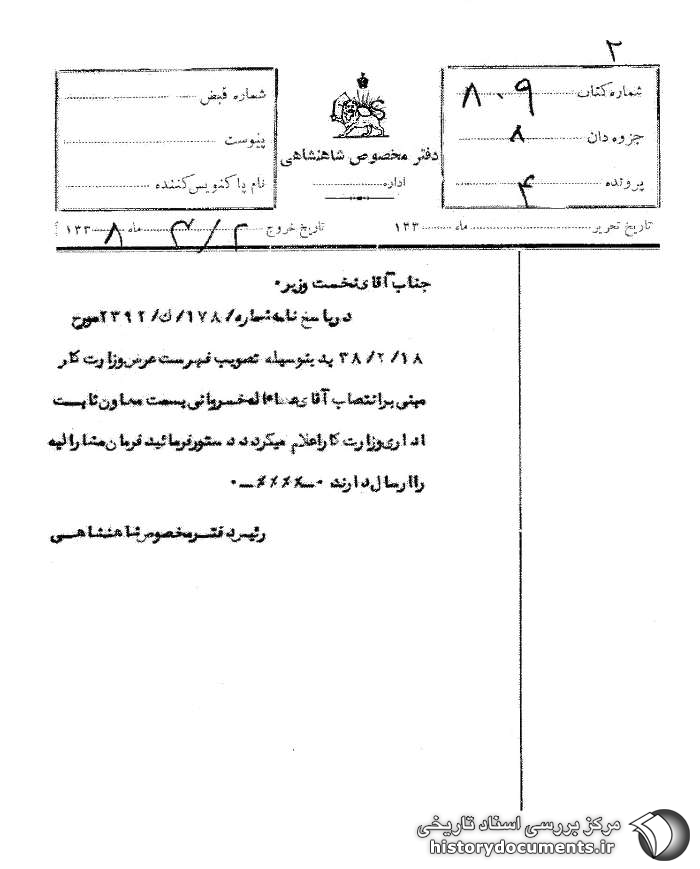 ۲
شماره کتاب ۸۰۹
جزوه دان ۸
پرونده ۴
دفتر مخصوص شاهنشاهی
اداره
شماره قبض
پیوست
نام پاکنویس کننده
تاریخ تحریر ماه ۱۳۳
تاریخ خروج ۳/۲ ماه ۱۳۳۸
جناب آقای نخست وزیر۰
در پاسخ نامه شماره/۱۷۸/ك/۲۳۹۲ مورخ
۳۸/۲/۱۸ بدینوسیله تصویب فهرست عرض وزارت کار
مبنی بر انتصاب آقای عطاءاله خسروانی بسمت معاون ثابت
اداری وزارت کار اعلام میگردد دستور فرمائید فرمان مشارالیه
را ارسال دارند ۰-٪٪٪٪-۰
رئیس دفتر مخصوص شاهنشاهی
مرکز بررسی اسناد تاریخی
historydocuments.ir